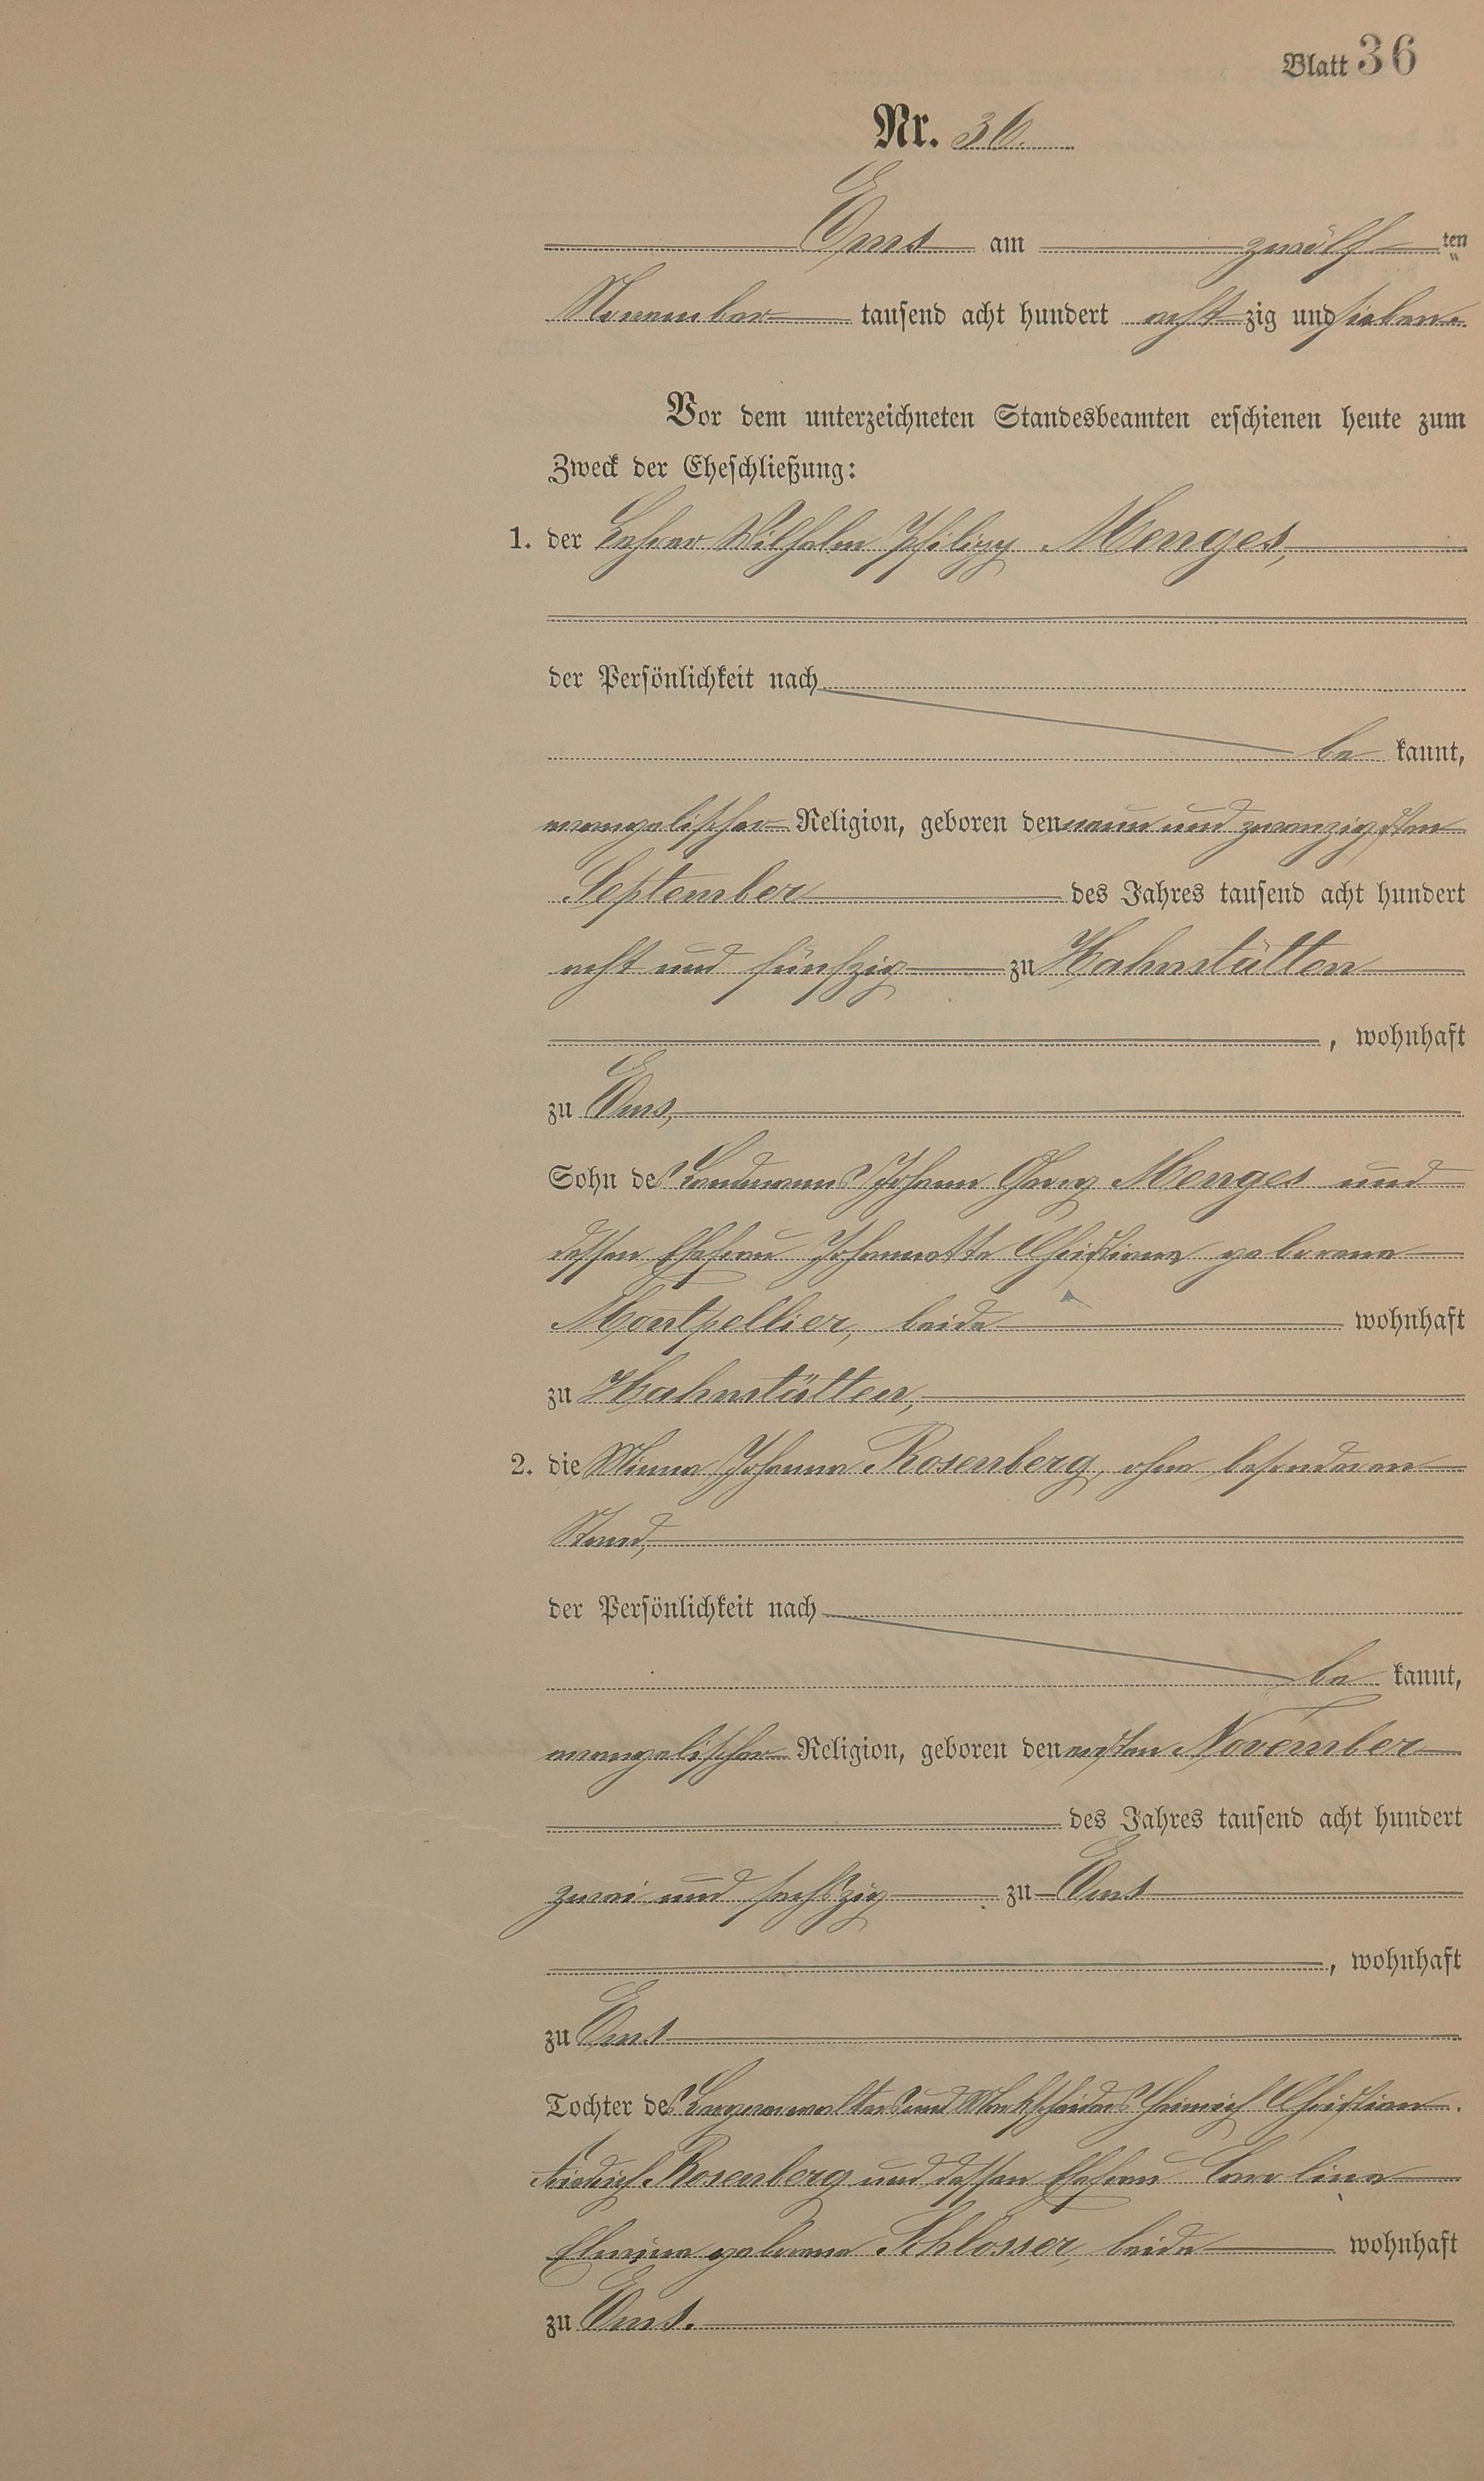 Blatt 36
Nr. 36.
Ems am zwölf ten
November tausend acht hundert acht zig und sieben.
Vor dem unterzeichneten Standesbeamten erschienen heute zum
Zweck der Eheschließung:
1. der Lehrer Wilhelm Philipp Menges,
der Persönlichkeit nach
be kannt,
evangelischer Religion, geboren den neun und zwanzigsten
September des Jahres tausend acht hundert
acht und fünfzig zu Hahnstätten
, wohnhaft
zu Ems,
Sohn des Landmanns Johann Georg Menges und
dessen Ehefrau Johannette Christiane geborene
Montpellier, beide wohnhaft
zu Hahnstätten,
2. die Minna Johanna Rosenberg, ohne besonderen
Stand,
der Persönlichkeit nach
be kannt,
evangelischer Religion, geboren den ersten November
des Jahres tausend acht hundert
zwei und sechszig zu Ems
, wohnhaft
zu Ems
Tochter des und Markscheiders Heinrich Christian
Friedrich Rosenberg und dessen Ehefrau Caroline
geborene Schlosser, beide wohnhaft
zu Ems.